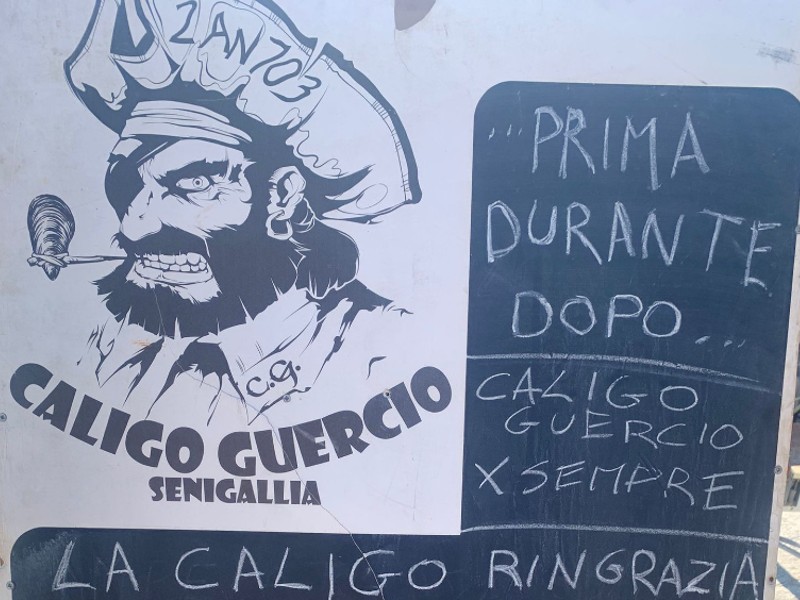 2AN703
C.G.
CALIGO GUERCIO
SENIGALLIA
...PRIMA
DURANTE
DOPO...
CALIGO
GUERCIO
X SEMPRE
LA CALIGO RINGRAZIA